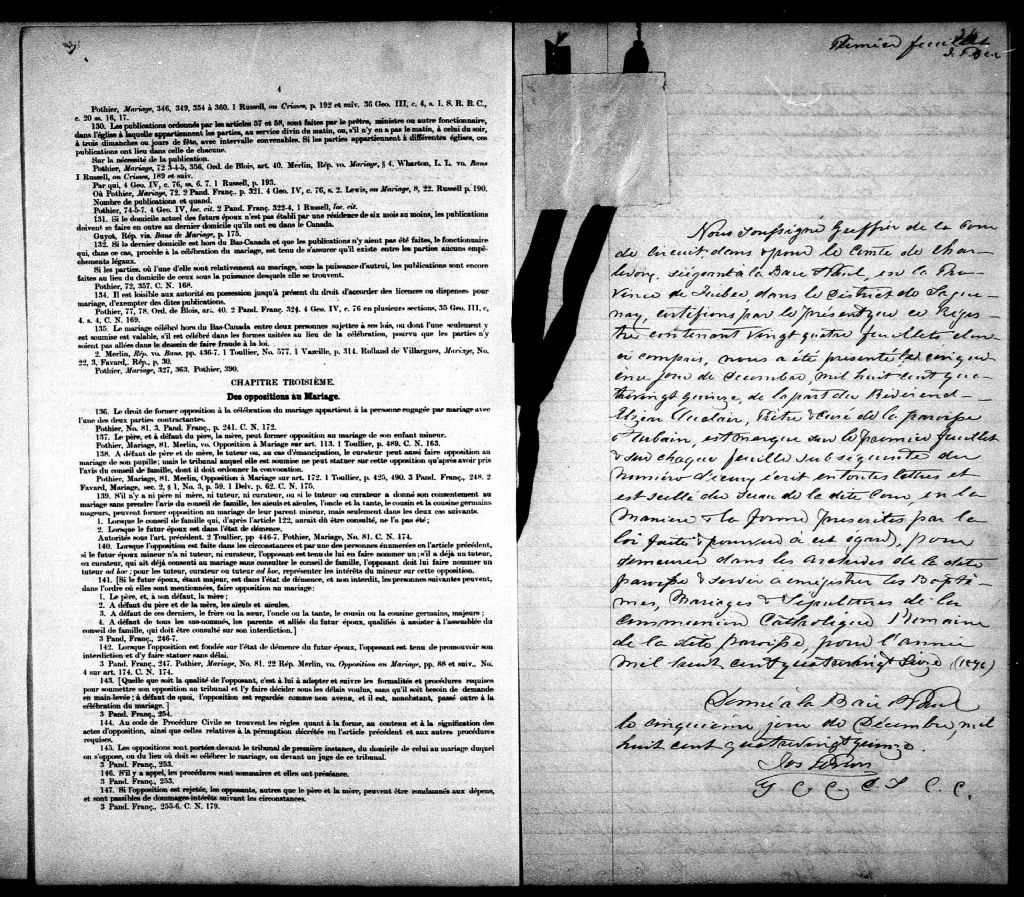 4
Pothier, Mariage, 346, 349, 354 à 360. 1 Russell, on Crimes, p. 192 et suiv. 36 Geo. III, c. 4, s. 1. S. R. B. C.,
c. 20 ss. 16, 17.
130. Les publications ordonnées par les articles 57 et 58, sont faites par le prêtre, ministre ou autre fonctionnaire,
dans l'église à laquelle appartiennent les parties, au service divin du matin, ou, s'il n'y en a pas le matin, à celui du soir,
à trois dimanches ou jours de fête, avec intervalle convenables. Si les parties appartiennent à différentes églises, ces
publications ont lieu dans celle de chacune.
Sur la nécessité de la publication.
Pothier, Mariage, 72 3-4-5, 356, Ord. de Blois, art. 40. Merlin, Rép. vo. Mariage, § 4. Wharton, L. L. vo. Bans
1 Russell, on Crimes, 189 et suiv.
Par qui, 4 Geo. IV, c. 76, ss. 6. 7. 1 Russell, p. 193.
Où Pothier, Mariage, 72. 2 Pand. Franç. p. 321. 4 Geo. IV, c. 76, s. 2. Lewis, on Mariage, 8, 22. Russell p. 190.
Nombre de publications et quand.
Pothier, 74-5-7. 4 Geo. IV, loc. cit. 2 Pand. Franç. 322-4, 1 Russell, loc. cit.
131. Si le domicile actuel des futurs époux n'est pas établi par une résidence de six mois au moins, les publications
doivent se faire en outre au dernier domicile qu'ils ont eu dans le Canada.
Guyot, Rép. vis. Bans de Mariage, p. 175.
132. Si le dernier domicile est hors du Bas-Canada et que les publications n'y aient pas été faites, le fonctionnaire
qui, dans ce cas, procède à la célébration du mariage, est tenu de s'assurer qu'il existe entre les parties aucuns empê-
chements légaux.
Si les parties, où l'une d'elle sont relativement au mariage, sous la puissance d'autrui, les publications sont encore
faites au lieu du domicile de ceux sous la puissance desquels elle se trouvent.
Pothier, 72, 357. C. N. 168.
134. Il est loisible aux autorité en possession jusqu'à présent du droit d'accorder des licences ou dispenses pour
mariage, d'exempter des dites publications.
Pothier, 77, 78. Ord. de Blois, art. 40. 2 Pand. Franç. 324. 4 Geo. IV, c. 76 en plusieurs sections, 35 Geo. III, c,
4. s. 4, C. N. 169.
135. Le mariage célébré hors du Bas-Canada entre deux personnes sujettes à ses lois, ou dont l'une seulement y
est soumise est valable, s'il est célébré dans les formes usitées au lieu de la célébration, pourvu que les parties n'y
soient pas allées dans le dessein de faire fraude à la loi.
2. Merlin, Rép. vo. Bans, pp. 436-7. 1 Toullier, No. 577. 1 Vazeille, p. 314. Rolland de Villargues, Mariage, No.
22, 3. Favard, Rép., p. 30.
Pothier, Mariage, 327, 363. Pothier, 390.
CHAPITRE TROISIÈME.
Des oppositions au Mariage.
136. Le droit de former opposition à la célébration du mariage appartient à la personne engagée par mariage avec
l'une des deux parties contractantes.
Pothier, No. 81. 3. Pand. Franç. p. 241. C. N. 172.
137. Le père, et à défaut du père, la mère, peut former opposition au mariage de son enfant mineur.
Pothier, Mariage, 81. Merlin, vo. Opposition à Mariage sur art. 113. 1 Toullier, p. 489. C. N. 163.
138. A défaut de père et de mère, le tuteur ou, au cas d'émancipation, le curateur peut aussi faire opposition au
mariage de son pupille; mais le tribunal auquel elle est soumise ne peut statuer sur cette opposition qu'après avoir pris
l'avis du conseil de famille, dont il doit ordonner la convocation.
Pothier, Mariage, 81. Merlin, Opposition à Mariage sur art. 172. 1 Toullier, p. 425, 490. 3 Pand. Franç., 248. 2
Favard, Mariage, sec. 2, § 1, No. 3, p. 59. 1 Delv. p. 62. C. N. 175.
139. S'il n'y a ni père ni mère, ni tuteur, ni curateur, ou si le tuteur ou curateur a donné son consentement au
mariage sans prendre l'avis du conseil de famille, les aïeuls et aïeules, l'oncle et la tante, le cousin et la cousine germains
mageurs, peuvent former opposition au mariage de leur parent mineur, mais seulement dans les deux cas suivants.
1. Lorsque le conseil de famille qui, d'après l'article 122, aurait dû être consulté, ne l'a pas été;
2. Lorsque le futur époux est dans l'état de démence.
Autorités sous l'art. précédent. 2 Toullier, pp 446-7. Pothier, Mariage, No. 81. C. N. 174.
140. Lorsque l'opposition est faite dans les circonstances et par une des personnes énumérées en l'article précédent,
si le futur époux mineur n'a ni tuteur, ni curateur, l'opposant est tenu de lui en faire nommer un; s'il a déjà un tuteur,
ou curateur, qui ait déjà consenti au mariage sans consulter le conseil de famille, l'opposant doit lui faire nommer un
tuteur ad hoc; pour les tuteur, curateur ou tuteur ad hoc, représenter les intérêts du mineur sur cette opposition.
141. [Si le futur époux, étant majeur, est dans l'état de démence, et non interdit, les personnes suivantes peuvent,
dans l'ordre où elles sont mentionnées, faire opposition au mariage:
1. Le père, et, à son défaut, la mère;
2. A défaut du père et de la mère, les aïeuls et aïeules.
3. A défaut de ces derniers, le frère ou la sœur, l'oncle ou la tante, le cousin ou la cousine germains, majeurs;
4. A défaut de tous les sus-nommés, les parents et alliés du futur époux, qualifiés à assister à l'assemblée du
conseil de famille, qui doit être consulté sur son interdiction.]
3 Pand. Franç., 246-7.
142. Lorsque l'opposition est fondée sur l'état de démence du futur époux, l'opposant est tenu de promouvoir son
interdiction et d'y faire statuer sans délai.
3 Pand. Franç., 247. Pothier, Mariage, No. 81. 22 Rép. Merlin, vo. Opposition au Mariage, pp. 88 et suiv., No.
4 sur art. 174. C. N. 174.
143. [Quelle que soit la qualité de l'opposant, c'est à lui à adopter et suivre les formalités et procédures requises
pour soumettre son opposition au tribunal et l'y faire décider sous les délais voulus, sans qu'il soit besoin de demande
en main-levée; à défaut de quoi, l'opposition est regardée comme non avenu, et il est, nonobstant, passé outre à la
célébration du mariage.]
3 Pand. Franç., 254.
144. Au code de Procédure Civile se trouvent les règles quant à la forme, au contenu et à la signification des
actes d'opposition, ainsi que celles relatives à la péremption décrétée en l'article précédent et aux autres procédures
requises.
145. Les oppositions sont portées devant le tribunal de première instance, du domicile de celui au mariage duquel
on s'oppose, ou du lieu où doit se célébrer le mariage, ou devant un juge de ce tribunal.
3 Pand. Franç., 253.
146. S'il y a appel, les procédures sont sommaires et elles ont préséance.
3 Pand. Franç., 253.
147. Si l'opposition est rejetée, les opposants, autres que le père et la mère, peuvent être condamnés aux dépens,
et sont passibles de dommages-intérêts suivant les circonstances.
3 Pand. Franç., 255-6. C. N. 179.
Premier feuillet
Nous soussigné Greffier de la Cour
de Circuit, dans & pour le Comté de Char-
levoix, siégeant à la Baie St Paul, en la Pro-
vince de Québec, dans le District de Sague-
nay, certifions par le présent que ce Régis-
tre contenant vingt quatre feuillets celui-
ci compris, nous a été présenté le cinqui-
ème jour de Decembre, mil huit cent qua-
trevingt quinze, de la part du Réverend
Elzear Auclair, Prêtre & curé de la paroisse
St Urbain, est marqué sur le premier feuillet
& sur chaque feuille subséquente du
numéro d'iceux écrit en toutes lettres et
est scellé du Sceau de la dite Cour, en la
manière & la forme prescrites par la
loi faite & pourvue à cet égard, pour
demeurer dans les archives de la dite
paroisse & servir à enregistrer les Baptê-
mes, Mariages & Sépultures de la
Communion Catholique Romaine
de la dite paroisse, pour l'année
mil huit cent quatrevingt seize (1896)
Donné à la Baie St Paul
le cinquième jour de Décembre, mil
huit cent quatrevingt quinze.
G C C